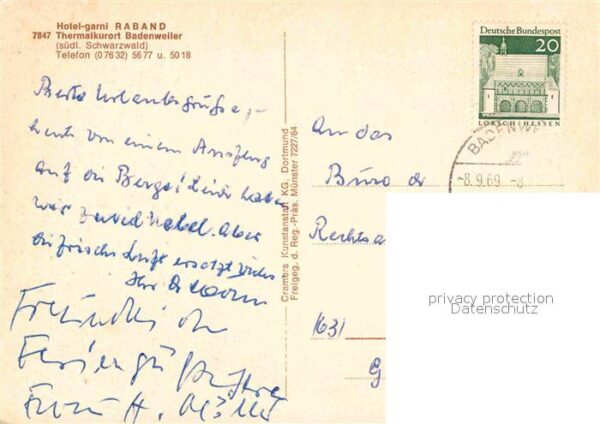 Hotel-garni RABAND
7847 Thermalkurort Badenweiler
(südl. Schwarzwald)
Telefon (0 76 32) 56 77 u. 50 18
Beste Urlaubsgrüße,-
heute von einem Ausflug
auf die Berge! Leider haben
wir zuviel Nebel. Aber
die frische Luft ersetzt vieles
Ihr
Freundliche
Feriengrüße
Frau H.
Cramers Kunstanstalt KG. Dortmund
Freigeg. d. Reg.-Präs. Münster 7227/64
Deutsche Bundespost
20
LORSCH/HESSEN
BADENWE
-8.9.69 -8
An das
Büro der
Rechtsa
1631
G
privacy protection
Datenschutz